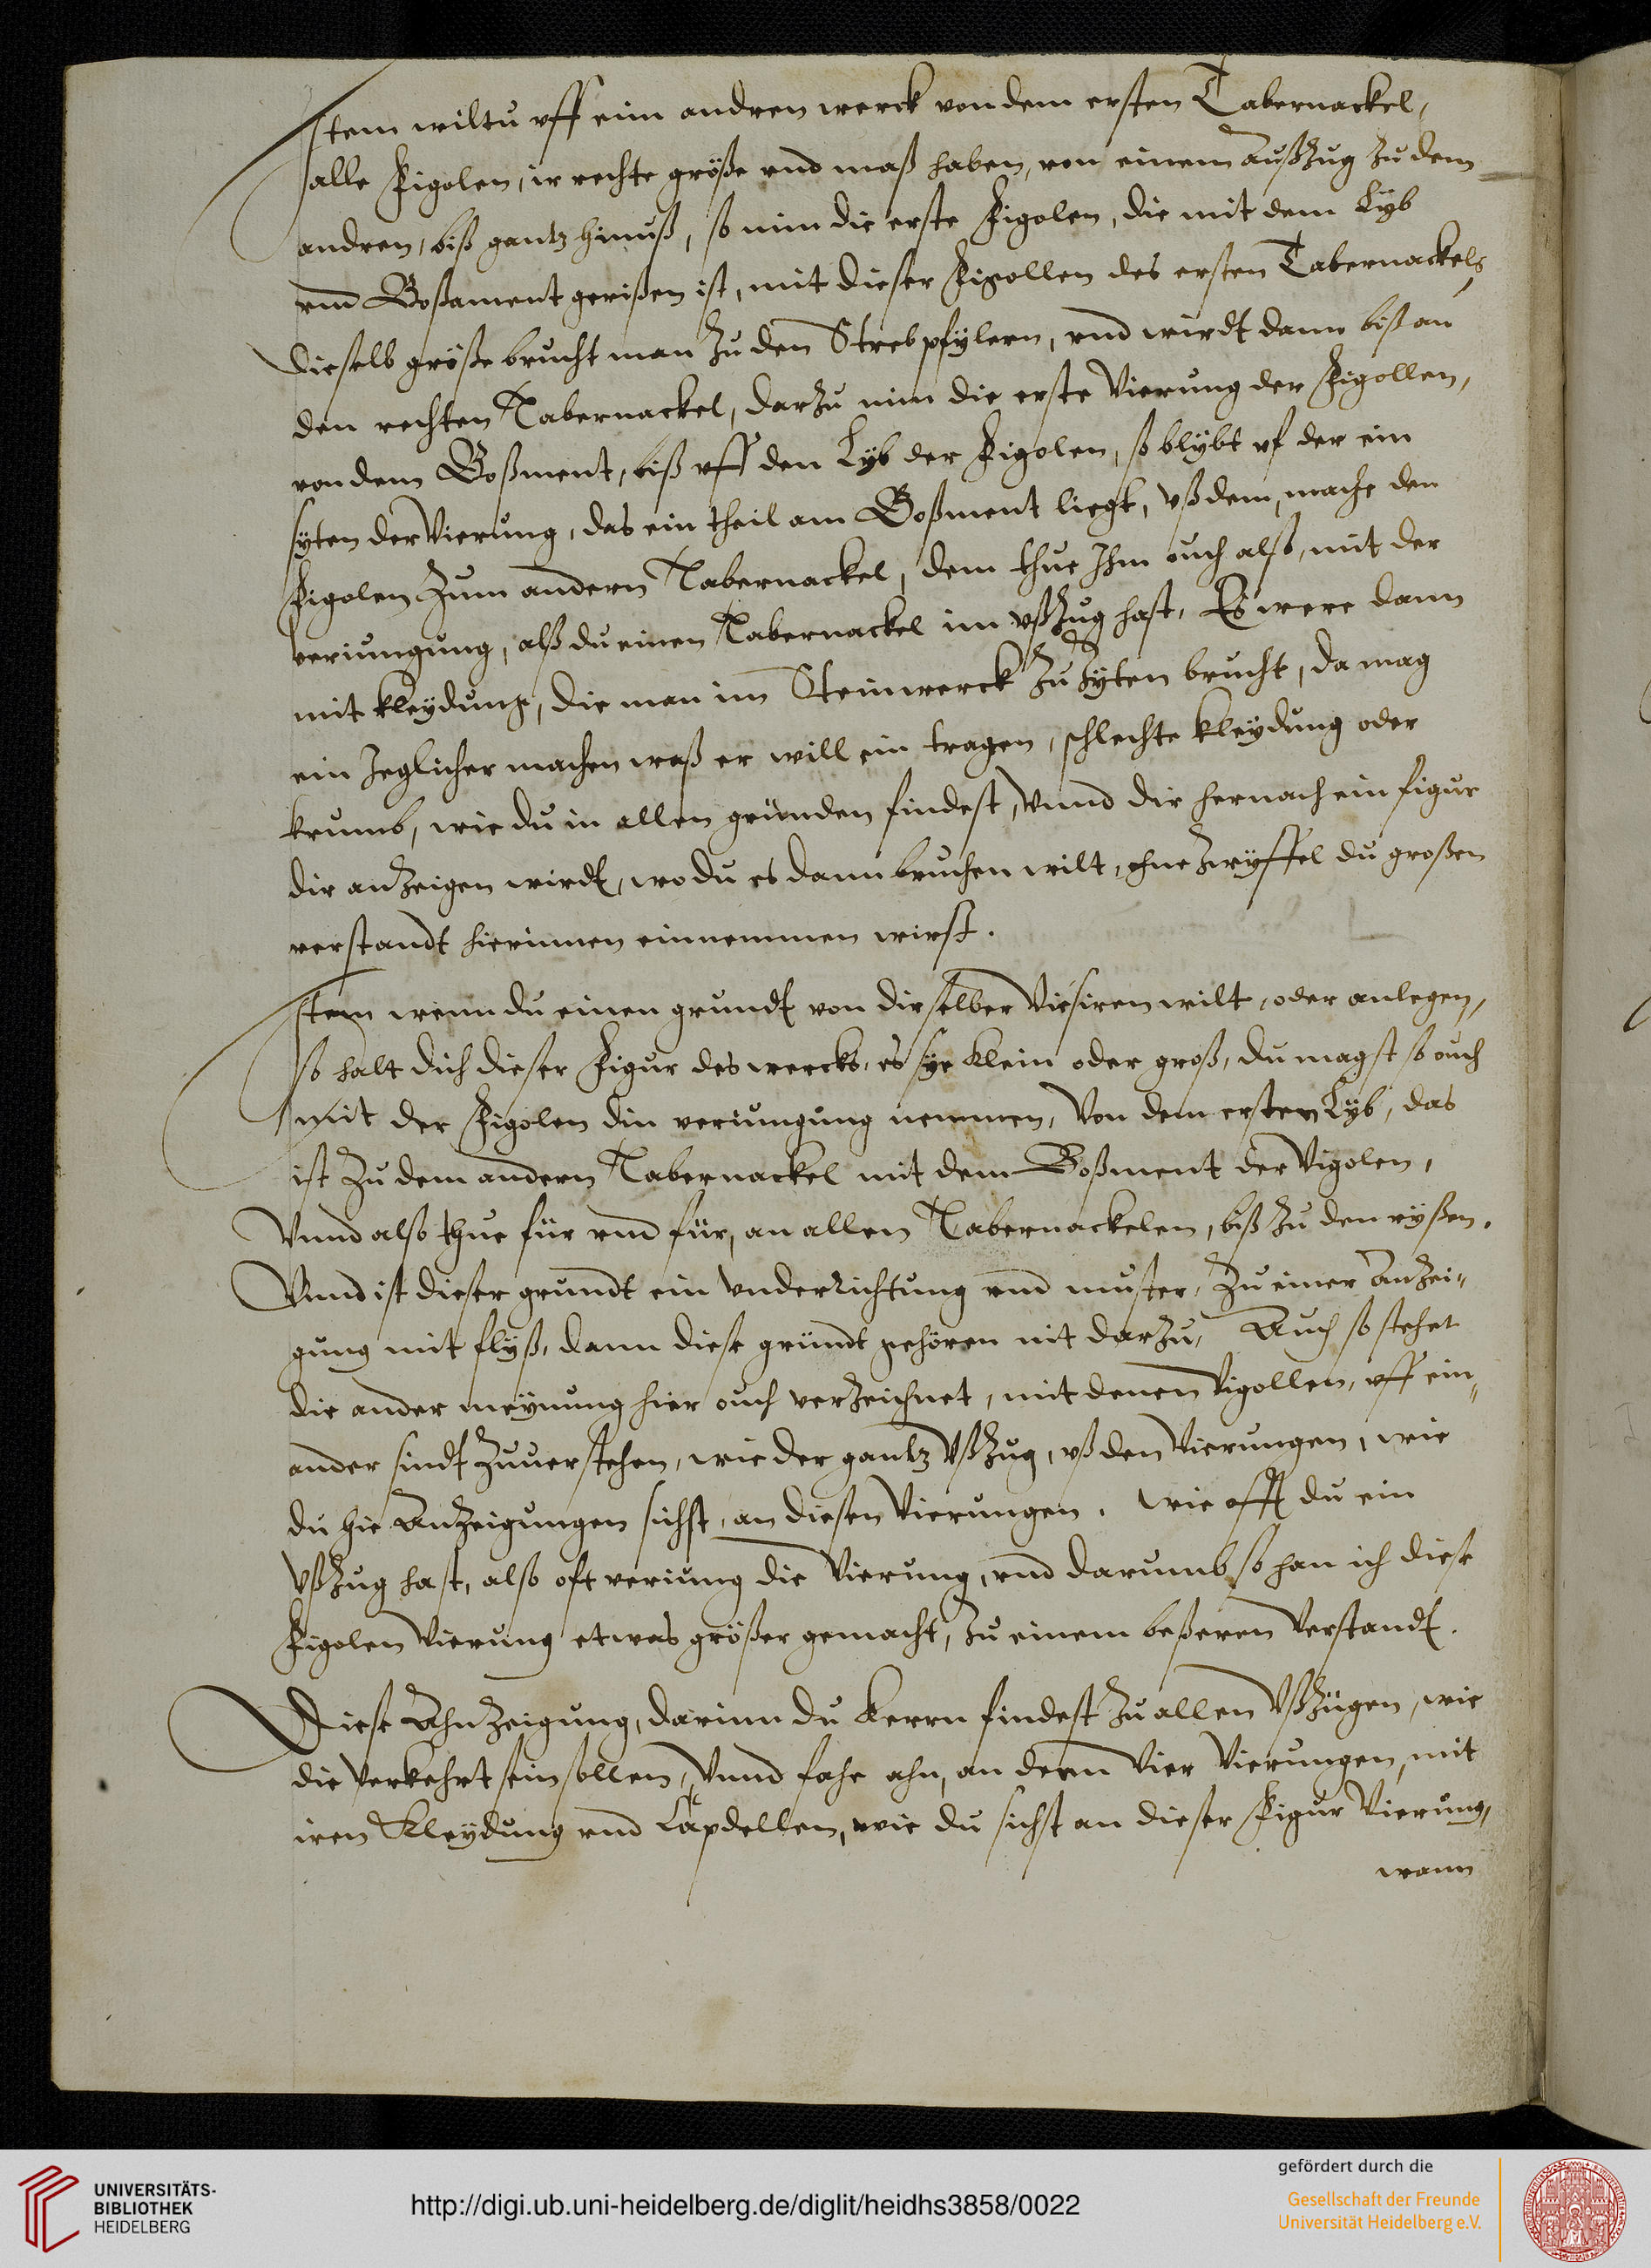 Item wiltu uff eim andren werck von dem ersten Tabernackel,
alle Figolen, ir rechte größe vnd maß haben, von einem außzug zu dem
andren, biß gantz hinuß, so nim die erste Figolen, die mit dem Lyb
vnd Boßament gerißen ist, mit dieser Figollen des ersten Tabernackels
dieselb größe brucht man zu den Strebpfylern, vnd wirdt dann biß an
den rechten Tabernackel, darzu nim die erste Vierung der Figollen,
von dem Boßment, biß vff den Lyb der Figolen, so blybt vf der ein
syten der Vierung, das ein theil am Boßment liegt, vß dem, mache den
Figolen zum andern Tabernackel, dem thue Ihm ouch also, mit der
veriungung, alß du einen Tabernackel im vßzug hast, Es were dann
mit kleydung, die man im Steinwerck zu zyten brucht, da mag
ein Jeglicher machen waß er will ein tragen, schlechte kleydung oder
krumb, wie du in allen gründen findest, Vnnd dir hernach ein figur
dir anzeigen wirdt, wo du es dann bruchen wilt, ohne zwyffel du großen
verstandt hierinnen einnemmen wirst.
Item wenn du einen grundt von dir selber Viesiren wilt, oder anlegen,
so halt dich dieser Figur des wercks, es sye klein oder groß, du magst so ouch
mit der Figolen din veriungung nemmen, Von dem ersten Lyb, das
ist zu dem andern Tabernackel mit dem Boßment der Vigolen,
Vnnd also thue für vnd für, an allen Tabernackelen, biß zu den ryßen.
Vnnd ist dieser grundt ein vnderrichtung vnd muster, zu einer anzei-
gung mit flyß, dann diese gründt gehören nit darzu, Auch so stehet
die ander meynung hier ouch verzeichnet, mit denen Vigollen, vff ein-
ander sindt zuuerstehen, wie der gantz Vßzug, vß den Vierungen, wie
du hie Anzeigungen sichst, an diesen Vierungen. Wie offt du ein
Vßzug hast, also oft veriung die Vierung, vnd darumb so han ich diese
Figolen Vierung etwas größer gemacht, zu einem beßeren Verstandt.
Diese Ahnzeigung, darinn du kerrn findest zu allen Vßzügen, wie
die Verkehrt sein sollen, Vnnd fahe ahn, an denn Vier Vierungen, mit
iren Kleydung vnd Capdellen, wie du sichst an dieser Figur Vierung,
wann
UNIVERSITÄTS-
BIBLIOTHEK
HEIDELBERG
http://digi.ub.uni-heidelberg.de/diglit/heidhs3858/0022
gefördert durch die
Gesellschaft der Freunde
Universität Heidelberg e.V.